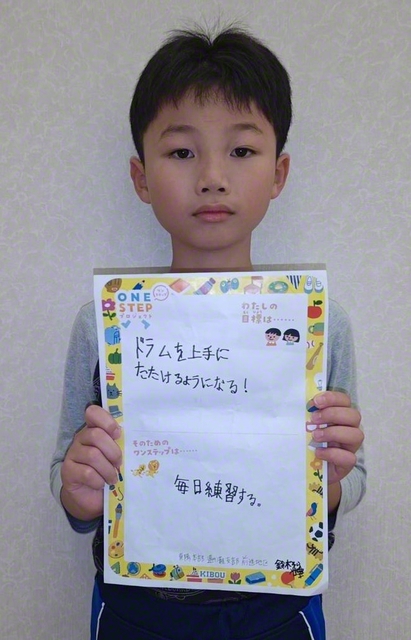 ONE
STEP
プロジェクト
わたしの
目標は……
ドラムを上手に
たたけるようになる！
そのための
ワンステップは……
毎日練習する。
KIBOU
鈴木